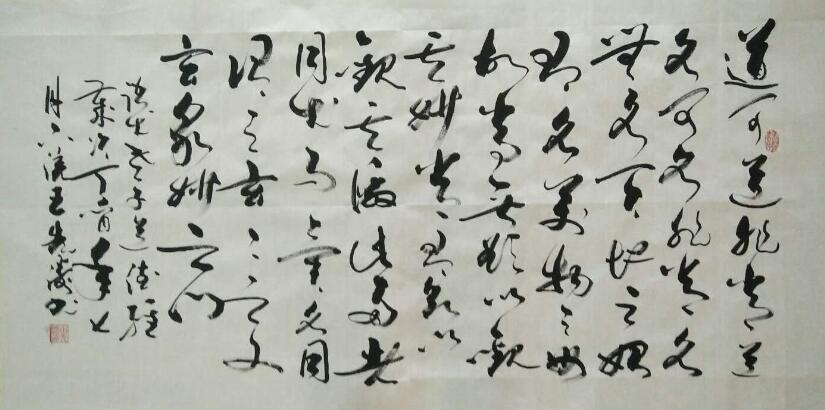 道可道非常道
名可名非常名
無名天地之始
有名萬物之母
故常無欲以觀
其妙常有欲以
觀其徼此兩者
同出而異名同
謂之玄玄之又
玄衆妙之門
老子道德經
歲次丁酉年七
月王書